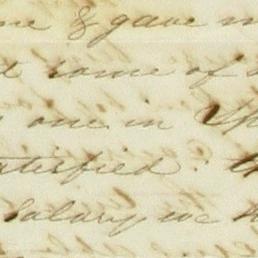 me & gave m
t some of
one in Sp
atisfied.
Salary we